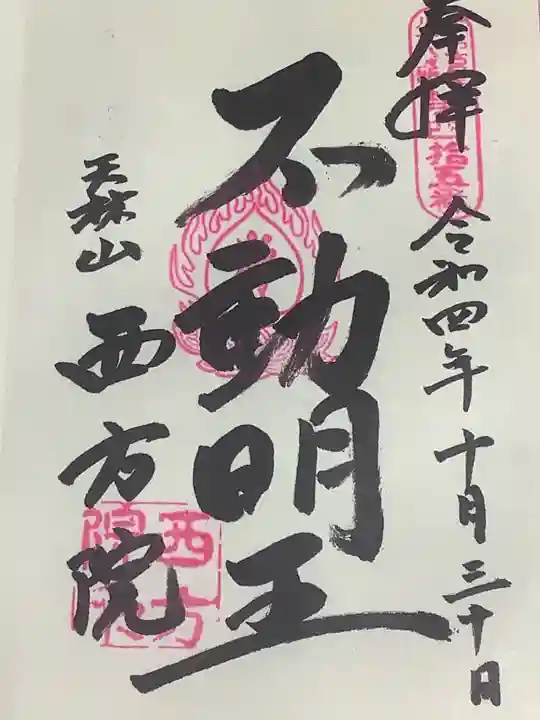 奉拝
令和四年十月三十日
不動明王
天林山
西方院
拾五番
西方
院